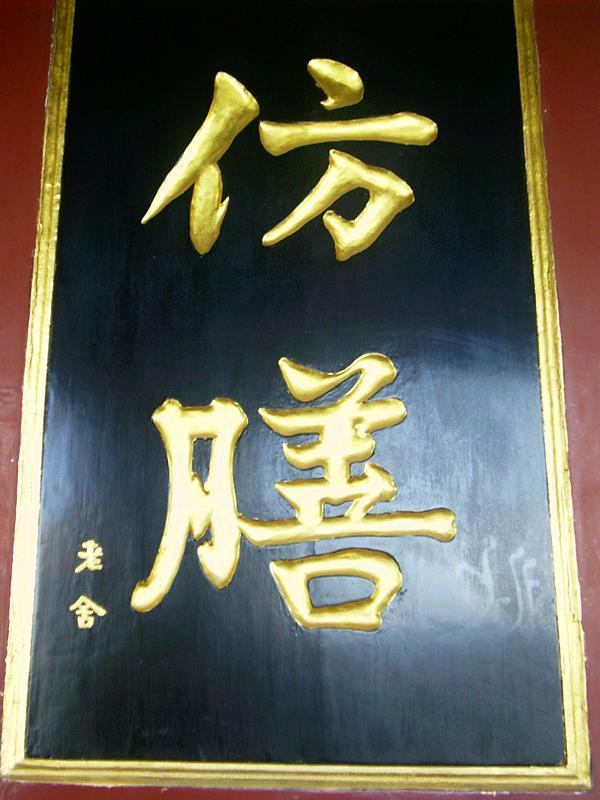 仿膳
老舍